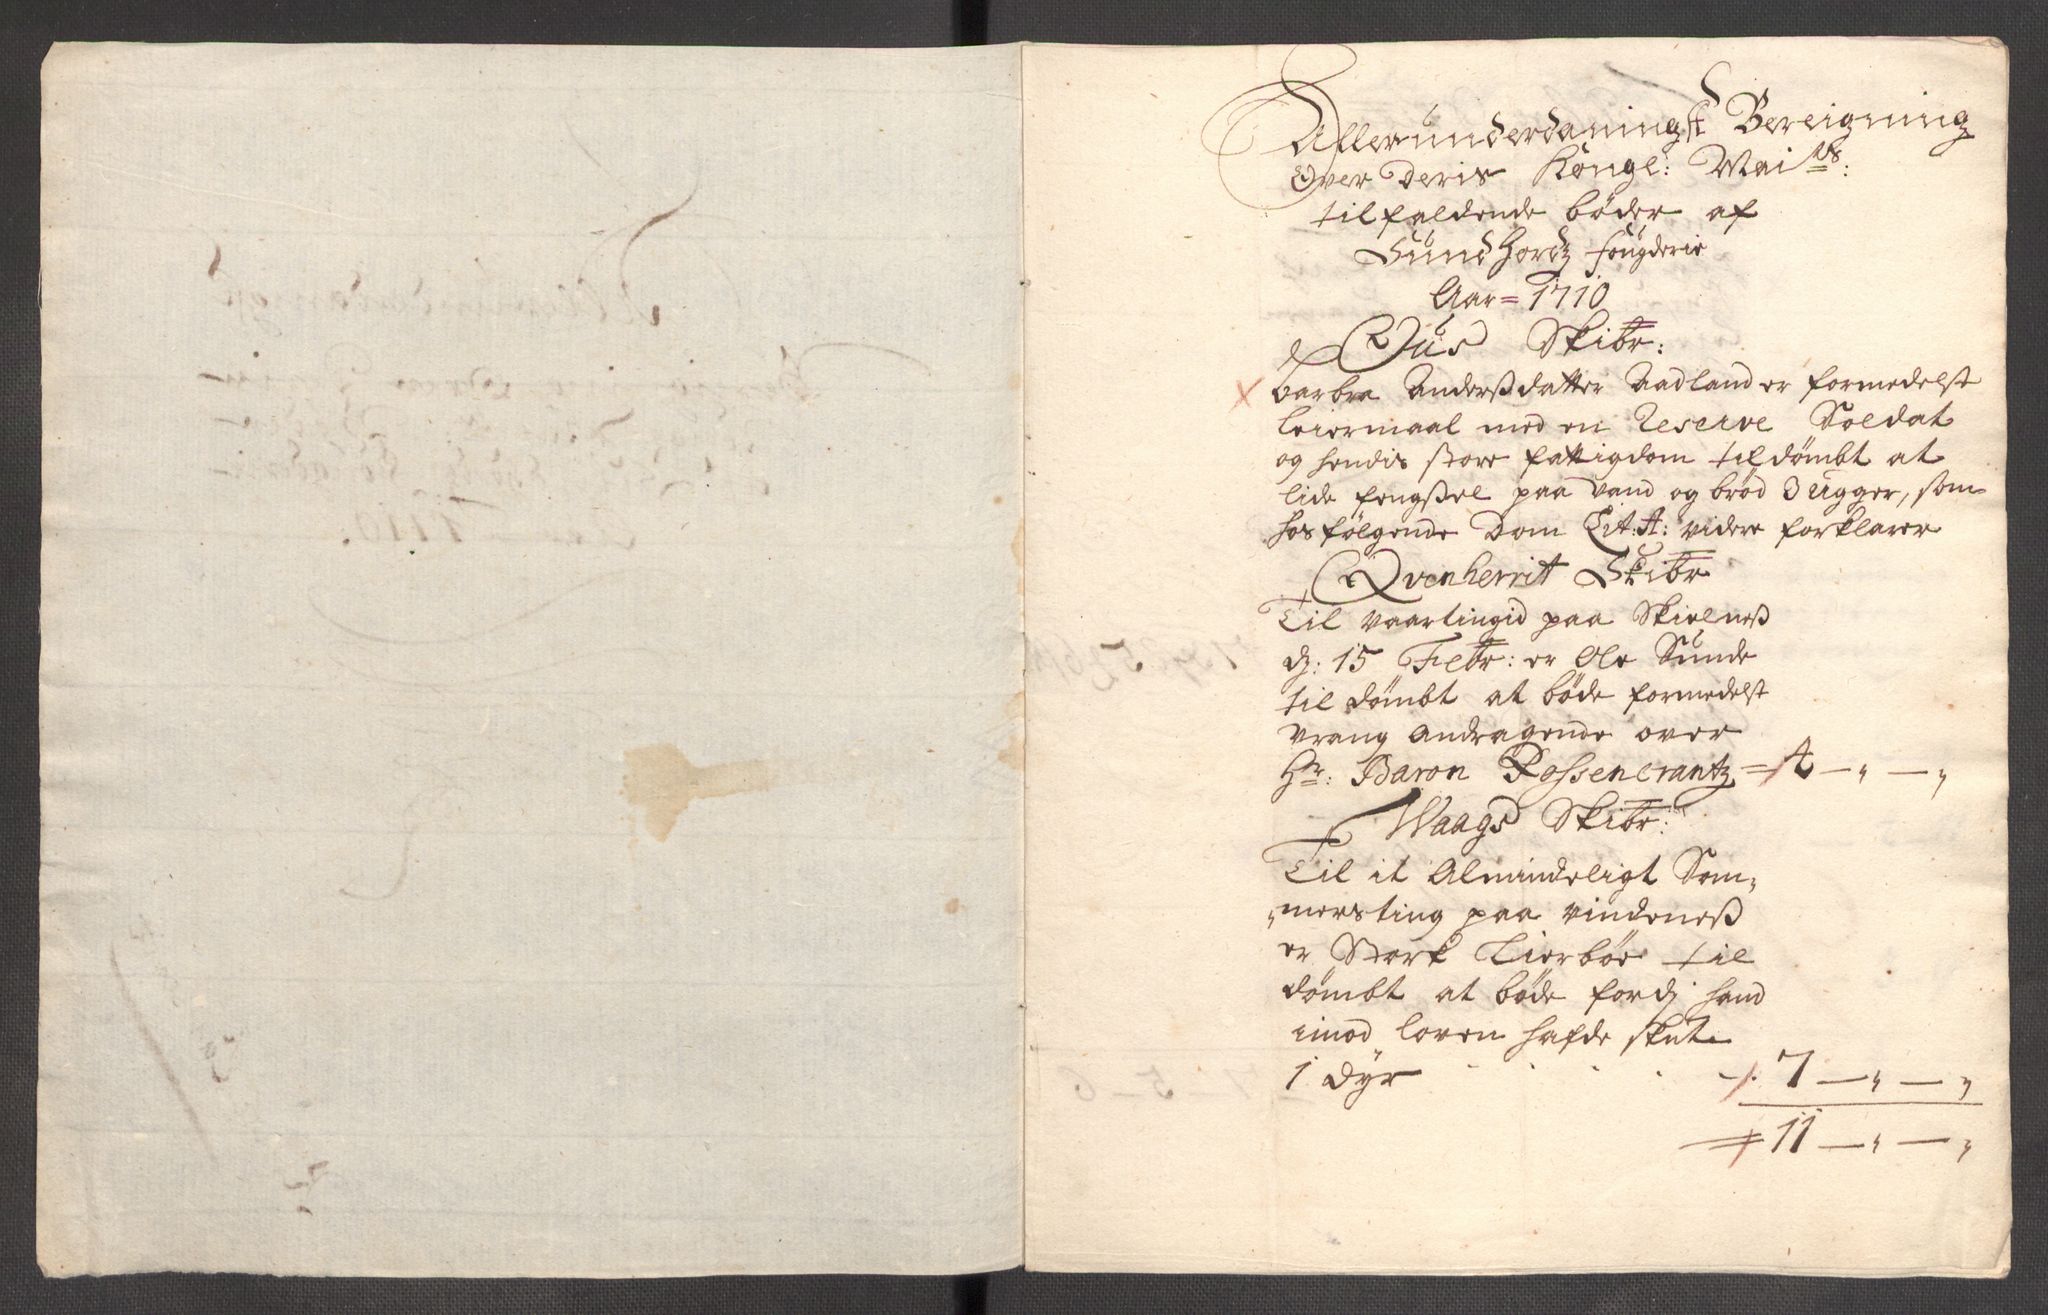 Allerunderdaningst Bereigning
Over Deris Kongl: Mai ts:
tilfaldende bøder af
Sundhordz fougderie
Aar = 1710
Ous Skibr:
Barbra Anderßdatter Aadland er formedelst
Leiermaal med en Reserve Soldat
og hendis store fattigdom tildømbt at
lide fengßel paa vand og brød 3 Ugger, som
hosfølgende Dom Lit: A: videre forklarer
Qvenherrit Skibr
Til vaartingid paa Skielneß
d: 15 Febr: er Ole Sunde
til dømbt at bøde formedelst
vrang andragende over
Hr: Baron Rossencrantz = 4 — „ — „
Waags Skibr:
Til it Almindeligt Som„
„mersting paa vindeneß
er Stork Tierbøe til
dømbt at bøde fordj hand
imod loven hafde skut
1 dyr . . . . 7 — „ — „
11 — „ — „